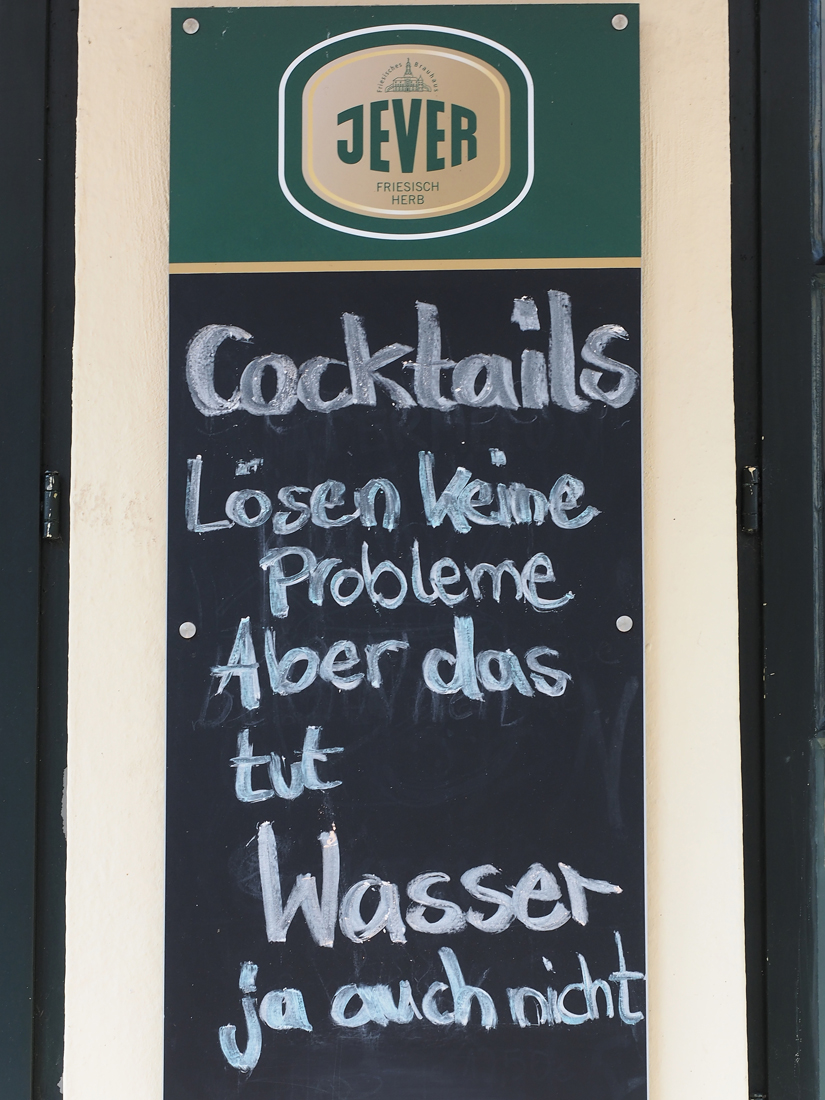 Friesisches Brauhaus
JEVER
FRIESISCH
HERB
Cocktails
Lösen keine
Probleme
Aber das
tut
Wasser
ja auch nicht